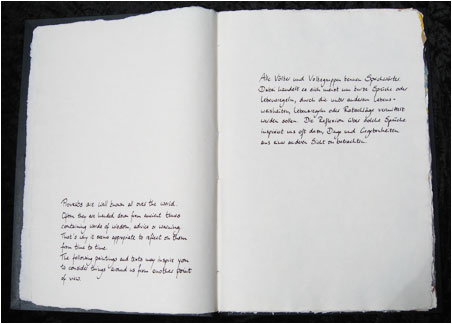 Proverbs are well known all over the world.
Often they are handed down from ancient times
containing words of wisdom, advice or warning.
That's why it seems appropriate to reflect on them
from time to time.
The following paintings and texts may inspire you
to consider things around us from another point
of view.
Alle Völker und Volksgruppen kennen Sprichwörter.
Dabei handelt es sich meist um kurze Sprüche oder
Lebensregeln, durch die unter anderem Lebens-
weisheiten, Lebensregeln oder Ratschläge vermittelt
werden sollen. Die Reflexion über solche Sprüche
inspiriert uns oft dazu, Dinge und Gegebenheiten
aus einer anderen Sicht zu betrachten.